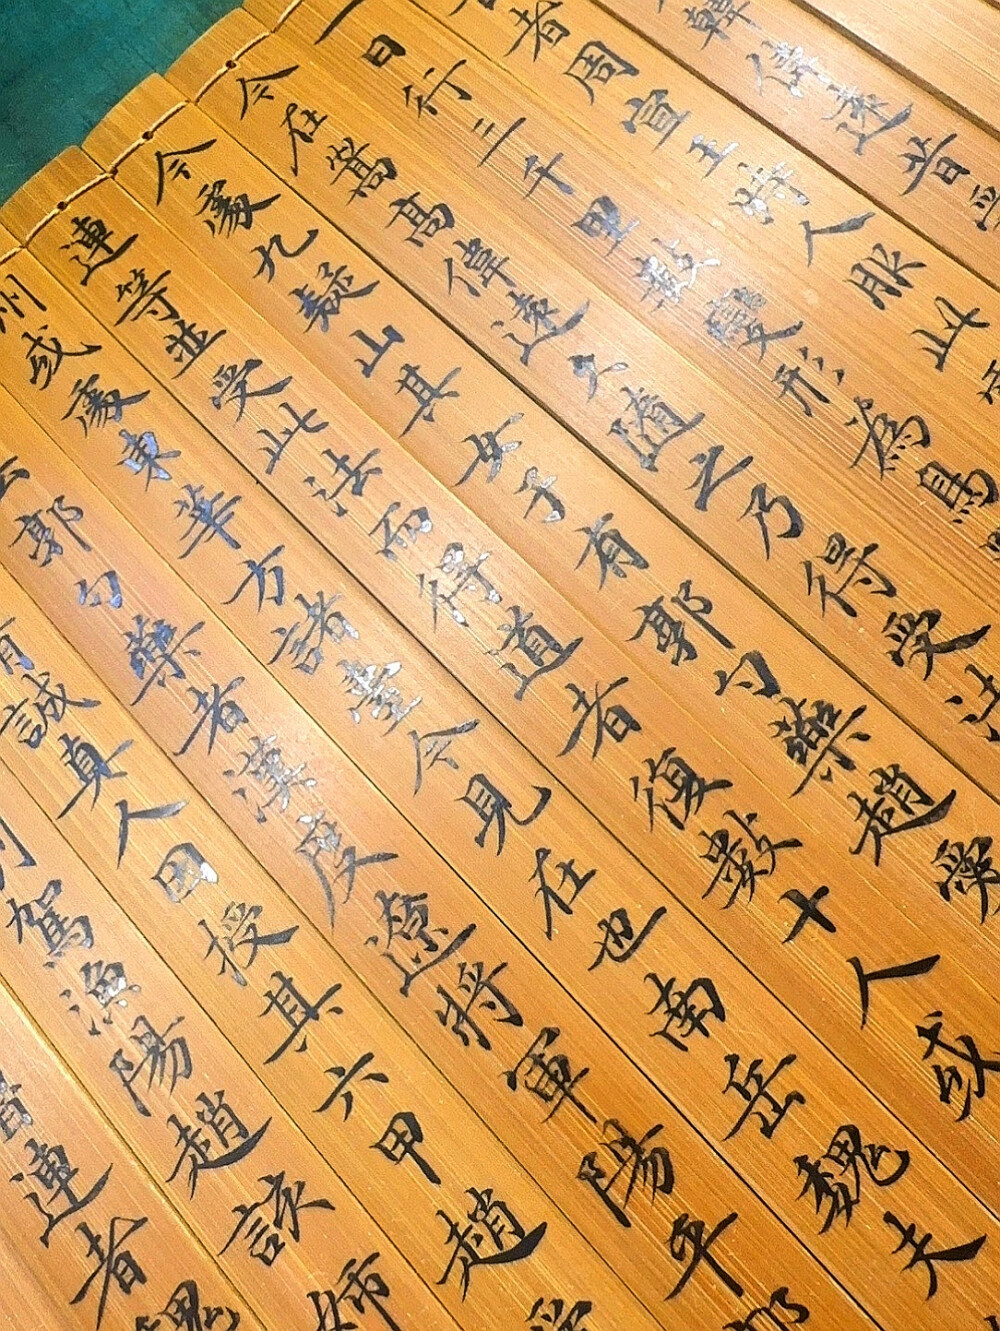 韓偉遠昔受
者周宣王時人服此
一日行三千里數變形為鳥
今在嵩高偉遠久隨之乃得受法
今處九疑山其女子有郭勺藥趙愛
連等並受此法而得道者復數十人或
州或處東華方諸臺今見在也南岳魏夫
云郭勺藥者漢度遼將軍陽平郭
誠真人因授其六甲趙愛
駕漁陽趙該姊
魯連者魏